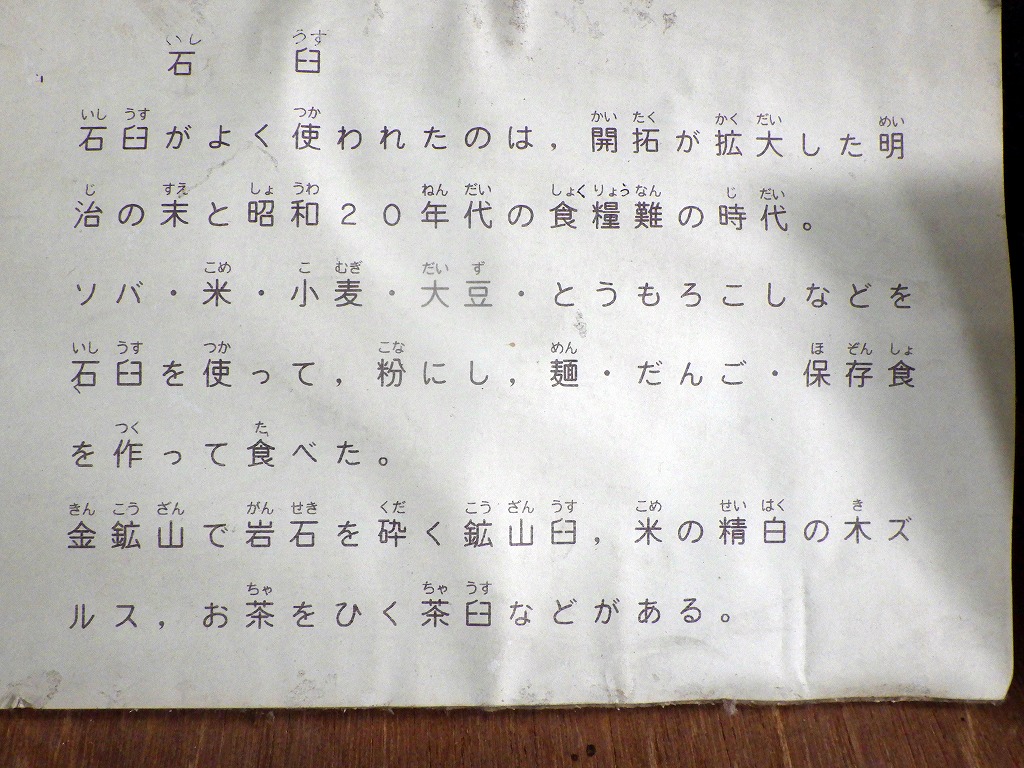 いし うす
石 臼
いし うす つか かい たく かく だい めい
石臼がよく使われたのは，開拓が拡大した明
じ すえ しょ うわ ねん だい しょく りょう なん じ だい
治の末と昭和２０年代の食糧難の時代。
こめ こ むぎ だい ず
ソバ・米・小麦・大豆・とうもろこしなどを
いし うす つか こな めん ほ ぞん しょ
石臼を使って，粉にし，麺・だんご・保存食
つく た
を作って食べた。
きん こう ざん がん せき くだ こう ざん うす こめ せい はく き
金鉱山で岩石を砕く鉱山臼，米の精白の木ズ
ちゃ ちゃ うす
ルス，お茶をひく茶臼などがある。